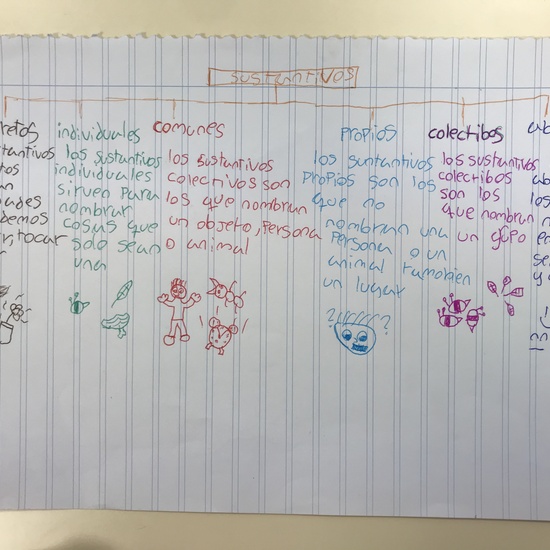 sustantivos
retos
tantivos
tos
an
ades
demos
r, tocar
individuales
los sustantivos
individuales
sirven para
nombrar
cosas que
solo sean
una
comunes
los sustantivos
colectivos son
los que nombran
un objeto, persona
o animal
propios
los suntantivos
propios son los
que no
nombran una
persona o un
animal tambien
un lugar
? ?
colectibos
los sustantivos
colectibos
son los
que nombran
un grupo
ab
ab
los
n
en
se
y